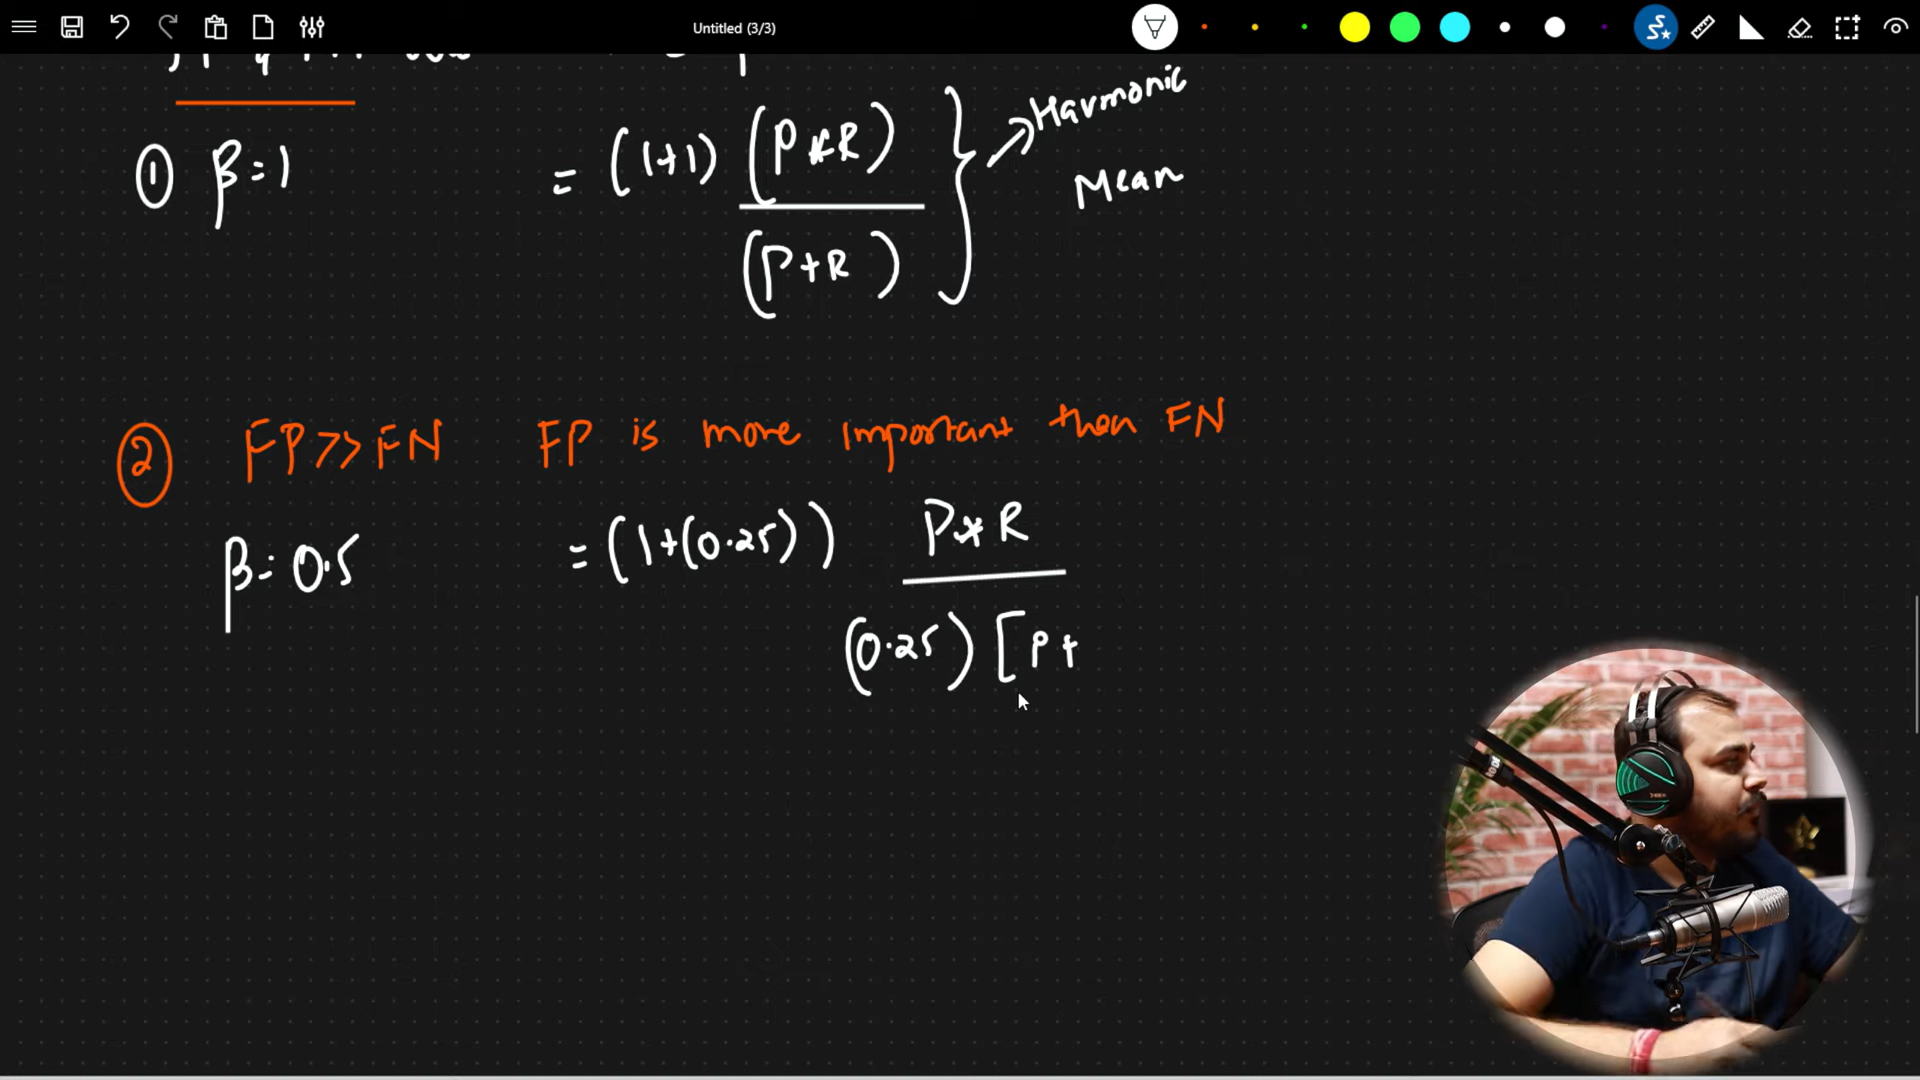 Untitled (3/3)
① β=1 = (1+1) (P*R) / (P+R) } → Harmonic
Mean
② FP>>FN FP is more important then FN
β=0.5 = (1+(0.25)) P*R
(0.25) [P+